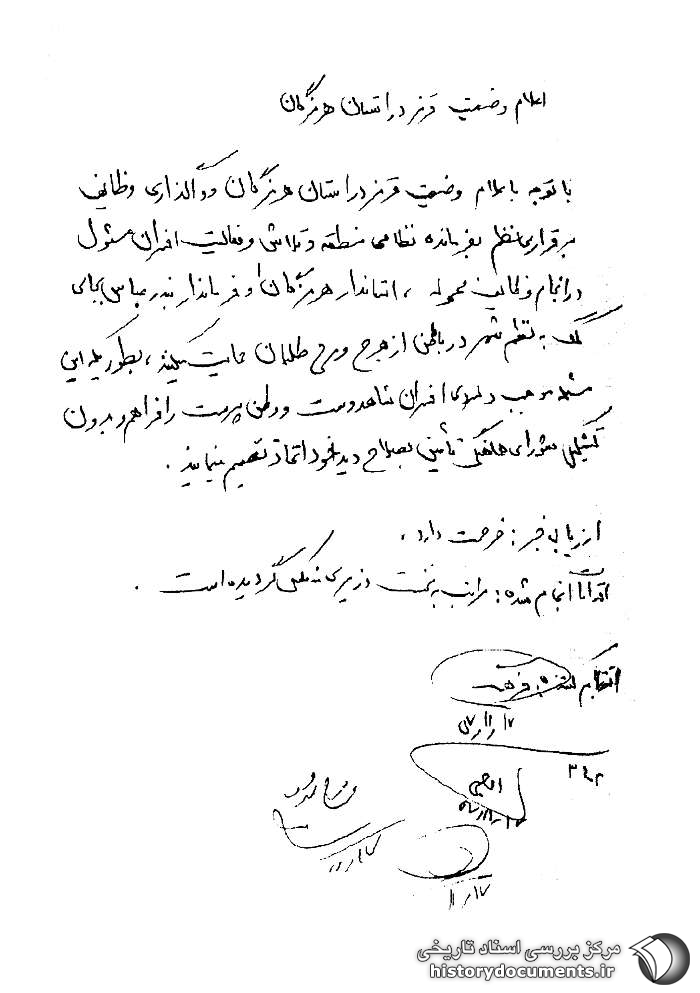 اعلام وضعیت قرمز در استان هرمزگان
با توجه باعلام وضعیت قرمز در استان هرمزگان و واگذاری وظایف
برقراری نظم بفرمانده نظامی منطقه و تلاش و فعالیت افسران مسئول
در انجام وظایف محوله ، استاندار هرمزگان و فرماندار بندرعباس بجای
کمک به نظم شهر در باطن از هرج و مرج طلبان حمایت میکنند ، بطوریکه این
مسئله موجب دلسردی افسران شاهدوست و وطن پرست را فراهم و بدون
تشکیل شورای هماهنگی تأمین بصلاح دید خود اتخاذ تصمیم مینمایند .
ارزیابی خبر : صحت دارد .
اقدامات انجام شده : مراتب به نخست وزیری منعکس گردیده است .
۱۷ / ۱۱ / ۵۷
۳۴۲
مرکز بررسی اسناد تاریخی
historydocuments.ir